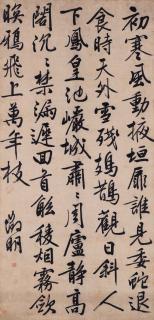 初寒風動掖垣扉誰見委蛇退
食時天外雪殘鳷鵲觀日斜人
下鳳皇池巖城肅〻周廬靜高
閣沉〻禁漏遲回首觚稜煙霧斂
晚鴉飛上萬年枝
徵明